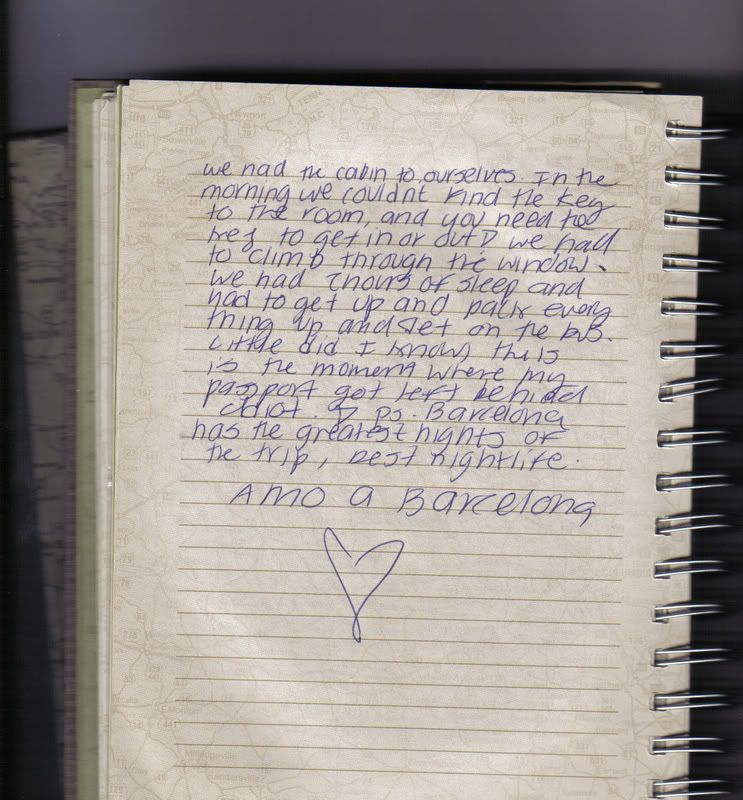 we had the cabin to ourselves. In the
morning we couldnt find the key
to the room, and you need the
key to get in or out we had
to climb through the window.
we had 2 hours of sleep and
had to get up and pack every
thing up and get on the bus.
Little did I know this
is the moment where my
passport got left behind
idiot. ps. Barcelona
has the greatest nights of
the trip, best nightlife.
AMO a Barcelona